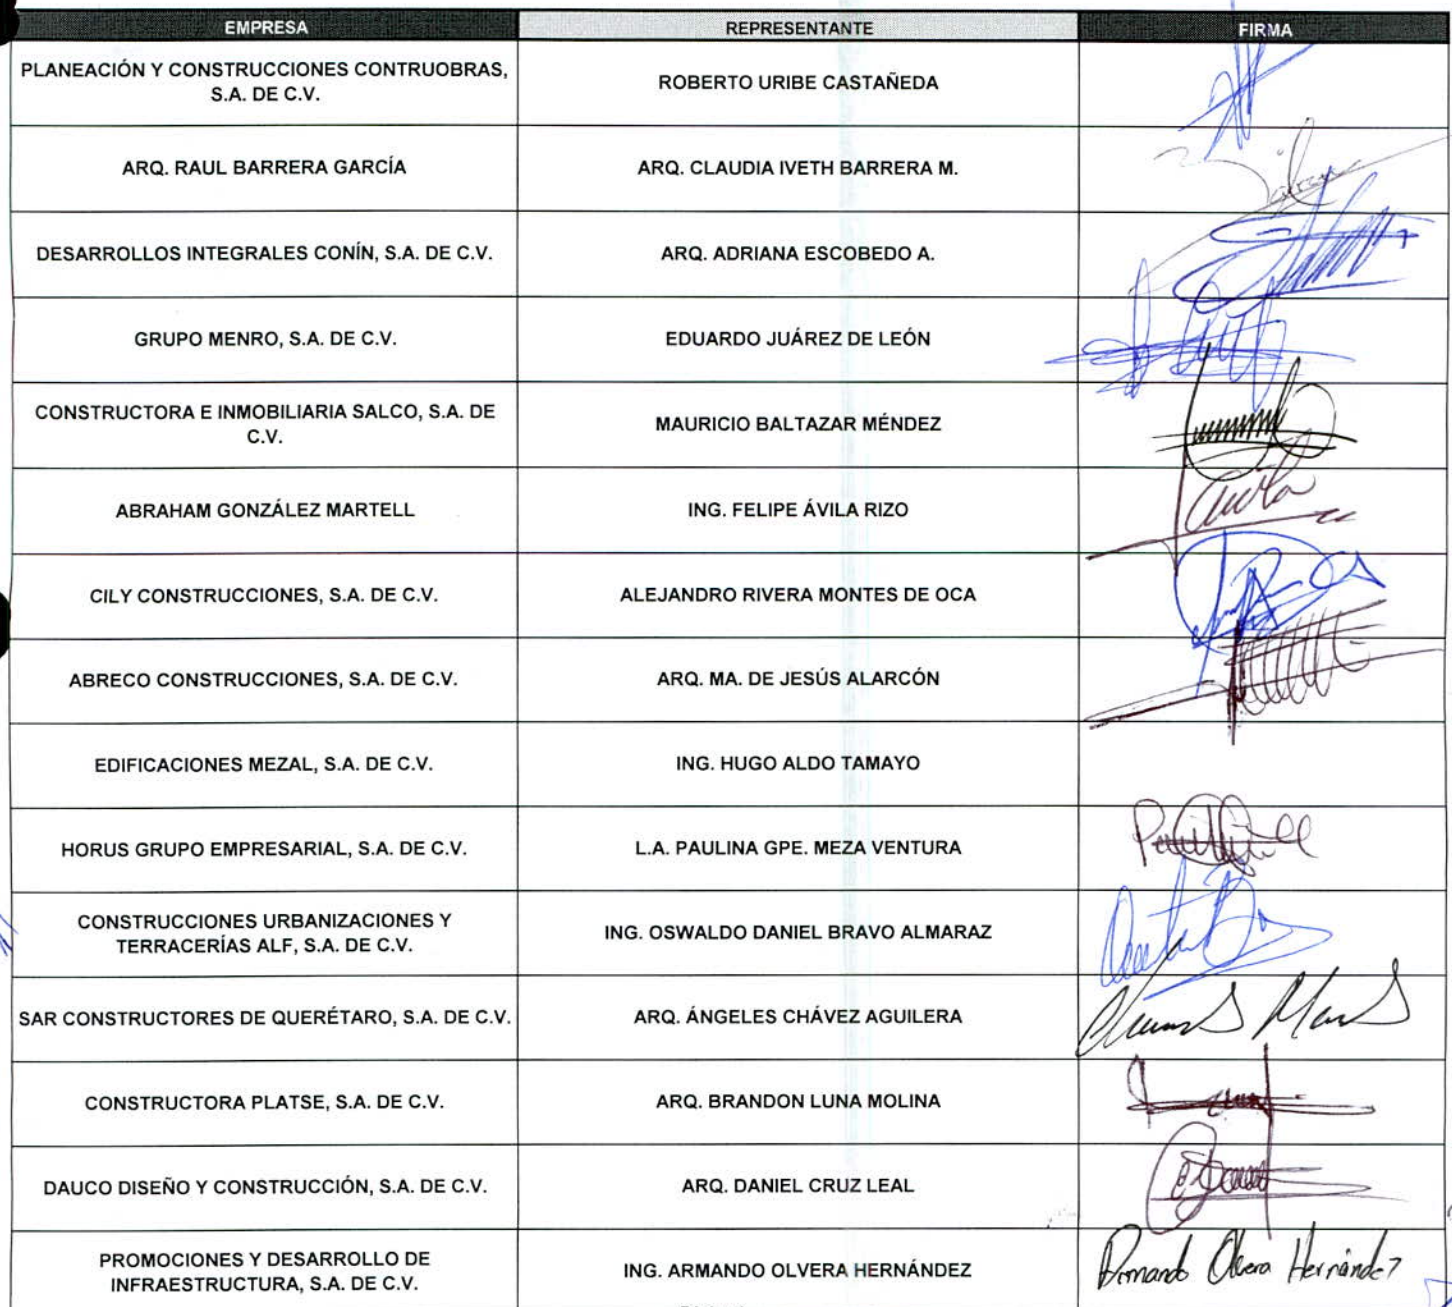 EMPRESA REPRESENTANTE FIRMA
PLANEACIÓN Y CONSTRUCCIONES CONTRUOBRAS,
S.A. DE C.V.
ROBERTO URIBE CASTAÑEDA
ARQ. RAUL BARRERA GARCÍA
ARQ. CLAUDIA IVETH BARRERA M.
DESARROLLOS INTEGRALES CONÍN, S.A. DE C.V.
ARQ. ADRIANA ESCOBEDO A.
GRUPO MENRO, S.A. DE C.V.
EDUARDO JUÁREZ DE LEÓN
CONSTRUCTORA E INMOBILIARIA SALCO, S.A. DE
C.V.
MAURICIO BALTAZAR MÉNDEZ
ABRAHAM GONZÁLEZ MARTELL
ING. FELIPE ÁVILA RIZO
CILY CONSTRUCCIONES, S.A. DE C.V.
ALEJANDRO RIVERA MONTES DE OCA
ABRECO CONSTRUCCIONES, S.A. DE C.V.
ARQ. MA. DE JESÚS ALARCÓN
EDIFICACIONES MEZAL, S.A. DE C.V.
ING. HUGO ALDO TAMAYO
HORUS GRUPO EMPRESARIAL, S.A. DE C.V.
L.A. PAULINA GPE. MEZA VENTURA
CONSTRUCCIONES URBANIZACIONES Y
TERRACERÍAS ALF, S.A. DE C.V.
ING. OSWALDO DANIEL BRAVO ALMARAZ
SAR CONSTRUCTORES DE QUERÉTARO, S.A. DE C.V.
ARQ. ÁNGELES CHÁVEZ AGUILERA
CONSTRUCTORA PLATSE, S.A. DE C.V.
ARQ. BRANDON LUNA MOLINA
DAUCO DISEÑO Y CONSTRUCCIÓN, S.A. DE C.V.
ARQ. DANIEL CRUZ LEAL
PROMOCIONES Y DESARROLLO DE
INFRAESTRUCTURA, S.A. DE C.V.
ING. ARMANDO OLVERA HERNÁNDEZ
Armando Olvera Hernández